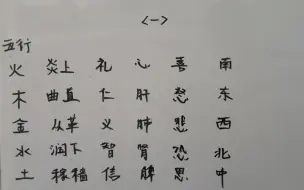 <一>
五行
火 炎上 礼 心 善 南
木 曲直 仁 肝 怒 东
金 从革 义 肺 悲 西
水 润下 智 肾 恐 北
土 稼穑 信 脾 思 中